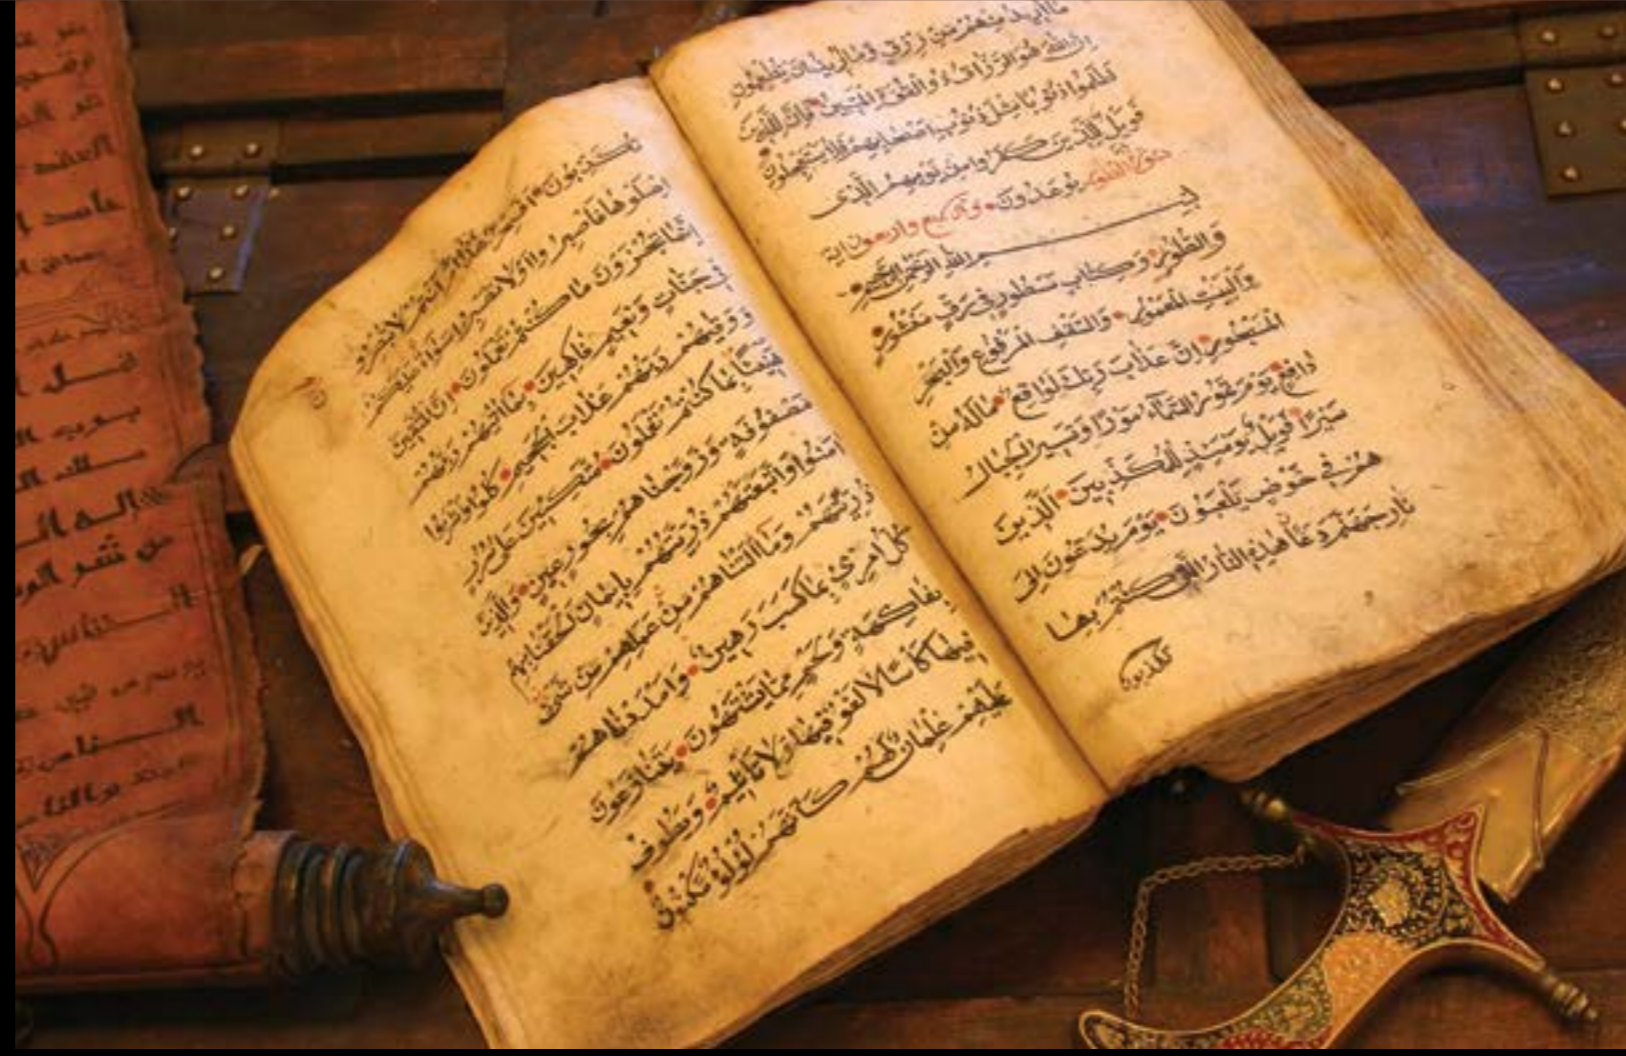 ما اريد منهم من رزق وما اريد ان يطعمون
ان الله هو الرزاق ذو القوة المتين فان للذين
ظلموا ذنوبا مثل ذنوب اصحابهم فلا يستعجلون
فويل للذين كفروا من يومهم الذي
سورة الطور يوعدون وهي سبع واربعون اية
بسم الله الرحمن الرحيم
والطور وكتاب مسطور في رق منشور
والبيت المعمور والسقف المرفوع والبحر
المسجور ان عذاب ربك لواقع ما له من
دافع يوم تمور السماء مورا وتسير الجبال
سيرا فويل يومئذ للمكذبين الذين
هم في خوض يلعبون يوم يدعون الى
نار جهنم دعا هذه النار التي كنتم بها
تكذبون
تكذبون افسحر هذا ام انتم لا تبصرون
اصلوها فاصبروا او لا تصبروا سواء عليكم
انما تجزون ما كنتم تعملون ان المتقين
في جنات ونعيم فاكهين بما اتيهم ربهم
ووقيهم ربهم عذاب الجحيم كلوا واشربوا
هنيئا بما كنتم تعملون متكئين على سرر
مصفوفة وزوجناهم بحور عين والذين
امنوا واتبعتهم ذريتهم بايمان الحقنا بهم
ذريتهم وما التناهم من عملهم من شئ
كل امرئ بما كسب رهين وامددناهم
بفاكهة ولحم مما يشتهون يتنازعون
فيها كاسا لا لغو فيها ولا تاثيم ويطوف
عليهم غلمان لهم كانهم لؤلؤ مكنون
العقد
حاسد
قل
برب
ملك
اله
من شر
الناس
في
الناس